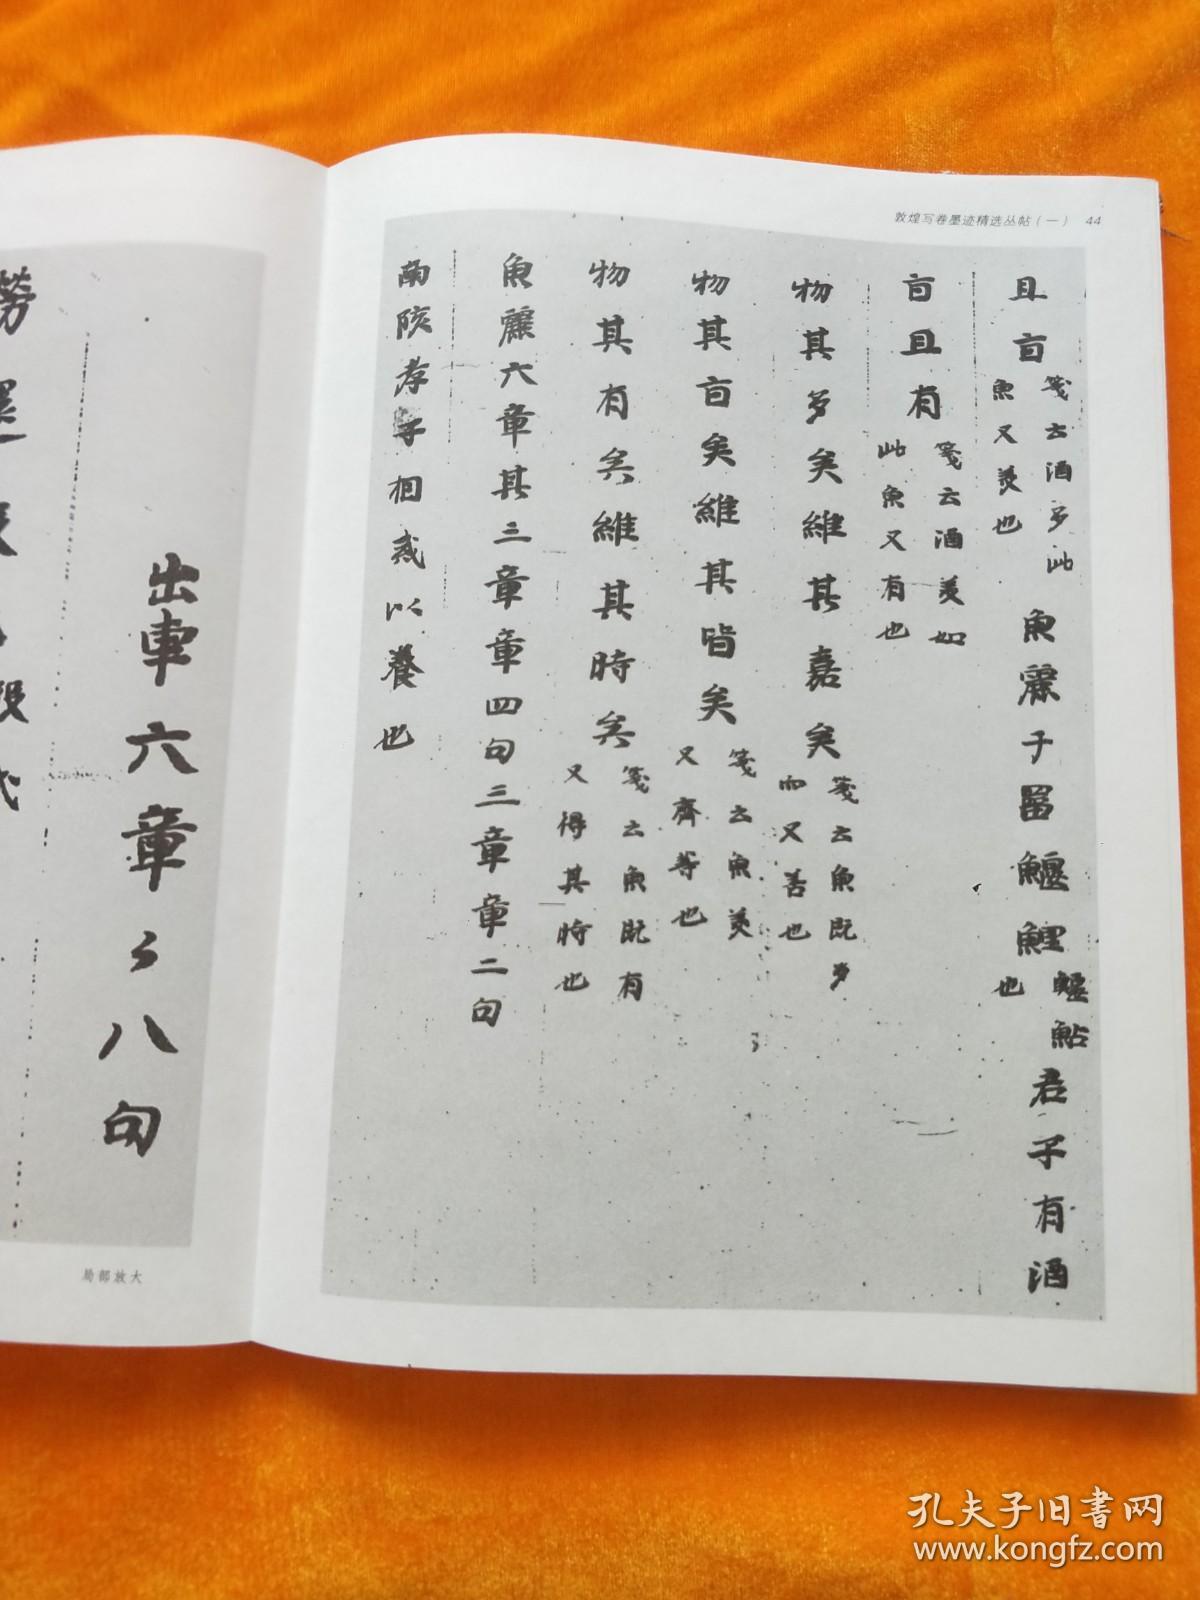 敦煌写卷墨迹精选丛帖（一） 44
且旨
箋云酒多此
魚又羙也
魚麗于罶鰋鯉
鰋鮎
也
君子有酒
旨且有
箋云酒羙如
此魚又有也
物其多矣維其嘉矣
箋云魚既多
而又善也
物其旨矣維其皆矣
箋云魚羙
又齊等也
物其有矣維其時矣
箋云魚既有
又得其時也
魚麗六章其三章章四句三章章二句
南陔孝子相戒以養也
出車六章々八句
勞還
局部放大
孔夫子旧书网
www.kongfz.com